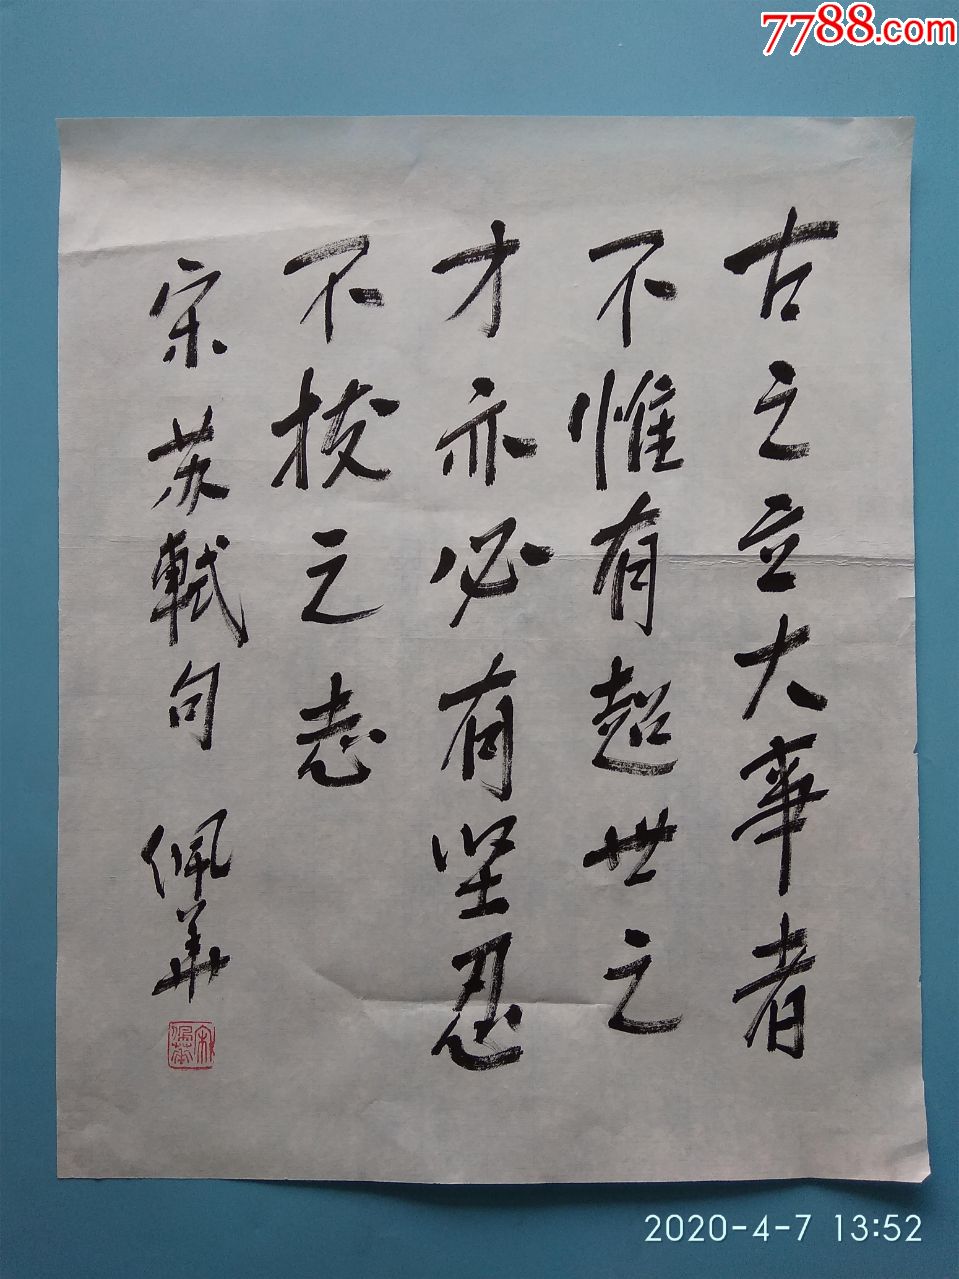 7788.com
古之立大事者
不惟有超世之
才亦必有坚忍
不拔之志
宋苏轼句 佩华
2020-4-7 13:52